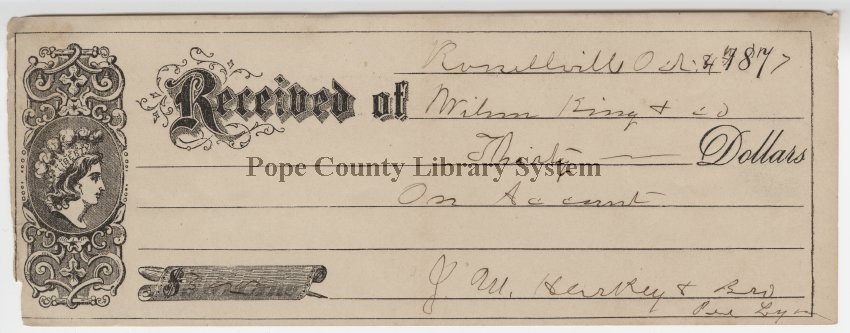 Russellville Oct 1877
Received of Wilson King & co
Thirty — Dollars
Pope County Library System
On Account
$
J. M. Harkey & Bro
Per